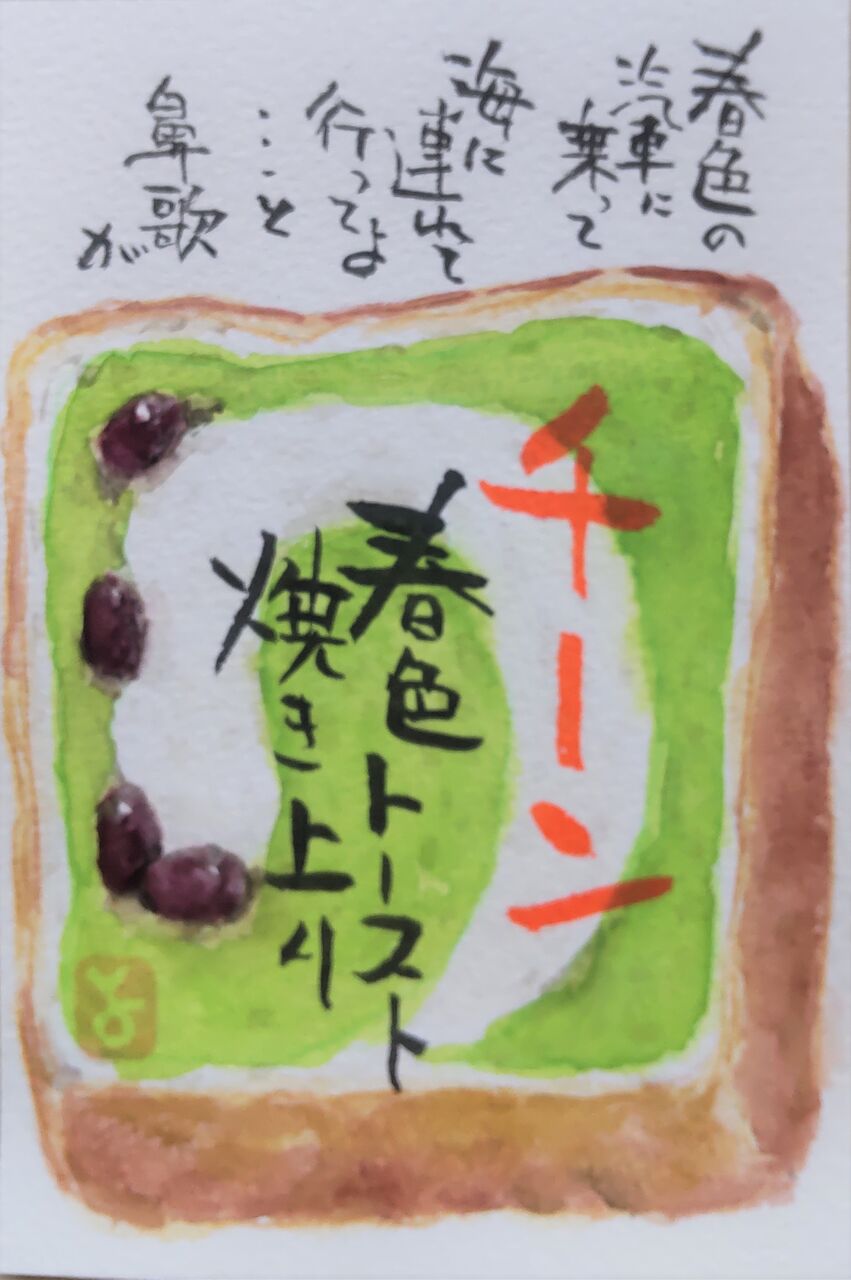 春色の
汽車に
乗って
海に
連れて
行ってよ
…と
鼻歌
が
チーン
春色トースト
焼き上り